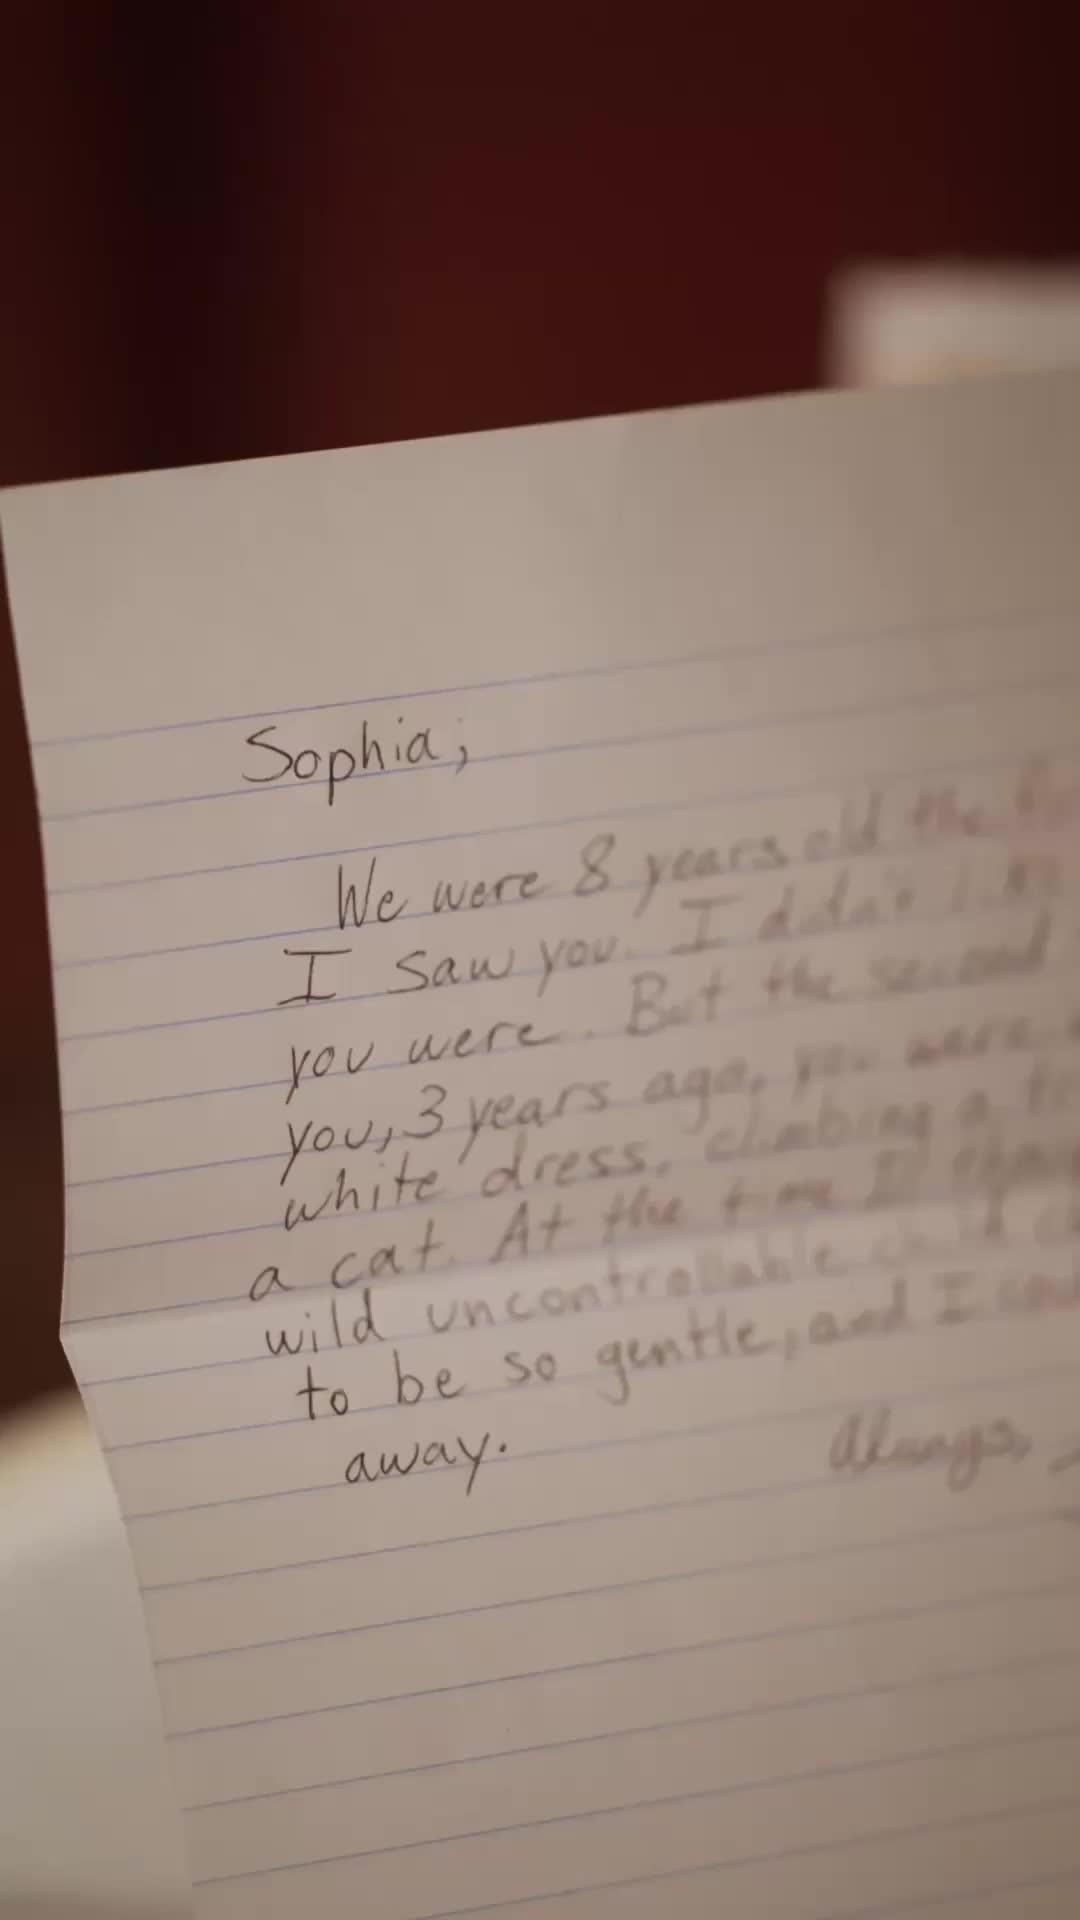 Sophia,
We were 8 years old the
I saw you. I didn't
you were. But the second
you, 3 years ago, you were
white dress, climbing a
a cat. At the time I
wild uncontrollable child
to be so gentle, and I
away.
Always,